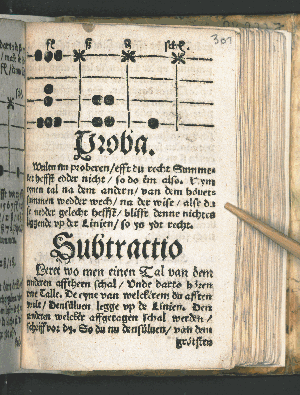 307
Proba.
Wellen nu proberen / efft du recht Summe-
ret heffst edder nicht / so do em also. Nym
einen tal na dem andern / van dem bövers
summen wedder wech / na der wise / alse du
se nedder gelecht heffst / blifft denne nichtes
liggende vp der Linien / so ys ydt recht.
Subtractio
Leret wo men einen Tal van dem
anderen afftheen schal / Vnde darto hören
twe Talle. De eyne van welckerem du afften
wult / Densüluen legge vp de Linien. Den
anderen welcker affgetagen schal werden /
schriff vor dy. So du nu densüluen / van dem
grötsten